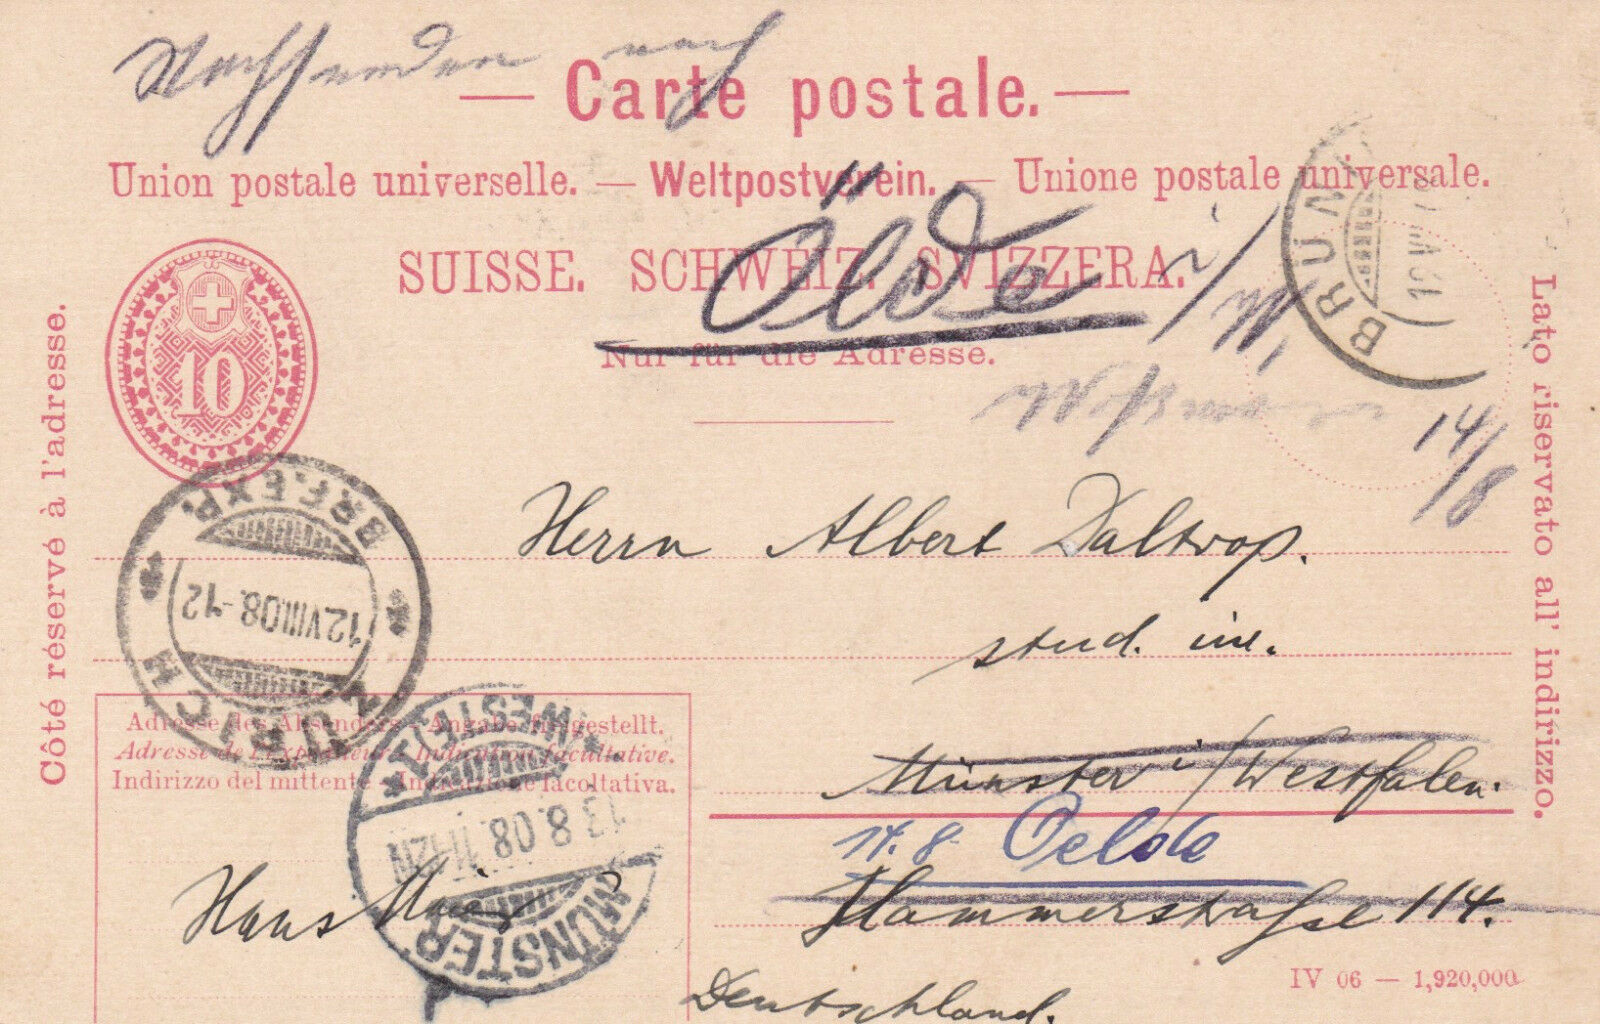 Nachsenden nach
Carte postale.
Union postale universelle. — Weltpostverein. — Unione postale universale.
Ölde i/W
SUISSE. SCHWEIZ. SVIZZERA.
Nur für die Adresse.
14/8
Côté réservé à l'adresse.
Lato riservato all' indirizzo.
10
BRÜN
ZÜRICH
BRF.EXP.
12.VIII.08.-12
Herrn Albert Daltrop.
stud. iur.
Münster i/Westfalen.
14. 8. Oelde
Hammerstrasse 114.
Deutschland.
Adresse des Absenders - Angabe freigestellt.
Adresse de l'expéditeur - Indication facultative.
Indirizzo del mittente - Indicazione facoltativa.
Hans Maier
MÜNSTER
*(WESTF.)1*
13.8.08.11-12N
IV 06 — 1,920,000